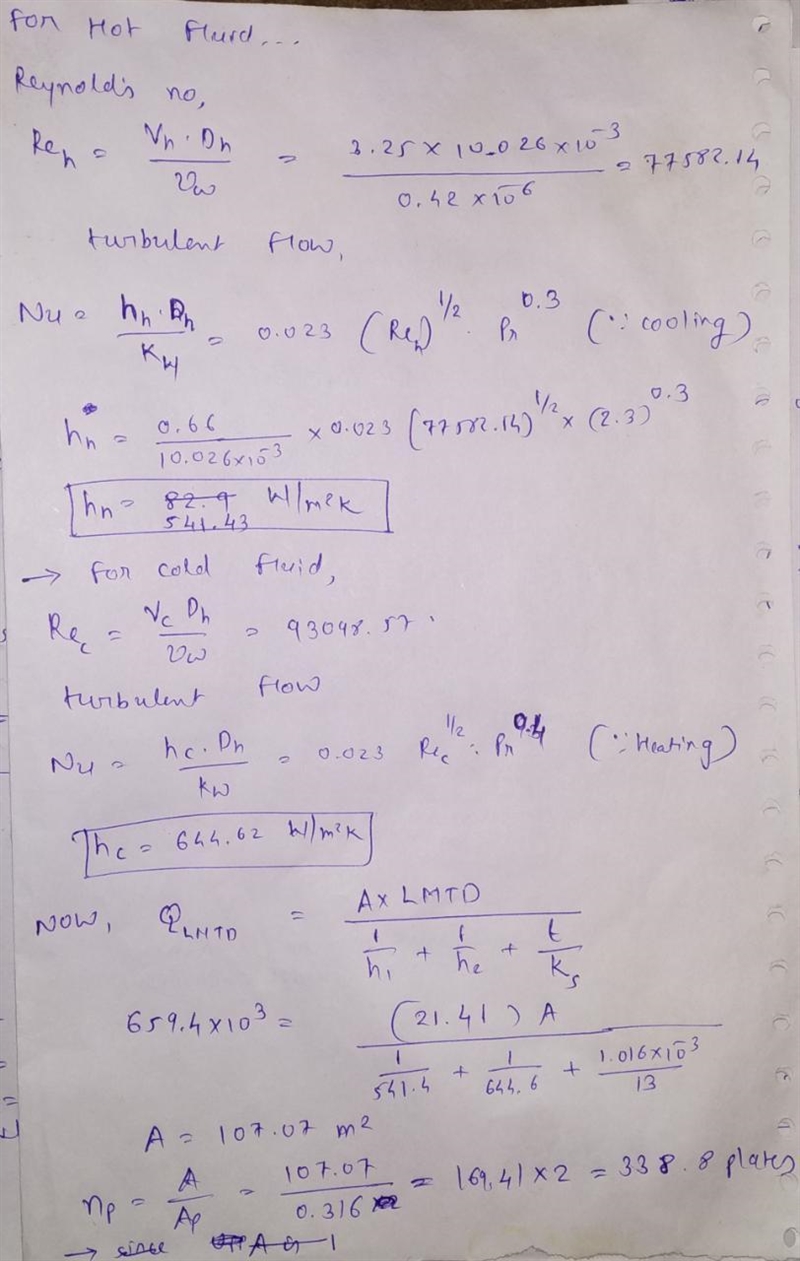 For Hot Fluid...
Reynold's no,
Re_h = V_h . D_h / υ_w = 3.25 × 10.026 × 10^-3 / 0.42 × 10^-6 = 77582.14
turbulent flow,
Nu = h_h . D_h / K_w = 0.023 (Re_h)^1/2 . Pr^0.3 (∵ cooling)
h_h = 0.66 / 10.026×10^-3 × 0.023 (77582.14)^1/2 × (2.3)^0.3
h_h = 82.9 W/m²K
541.43
→ For cold fluid,
Re_c = V_c D_h / υ_w = 93098.57.
turbulent flow
Nu = h_c . D_h / k_w = 0.023 Re_c^1/2 . Pr^0.4 (∵ Heating)
h_c = 644.62 W/m²K
NOW, Q_LMTD = A × LMTD / 1/h_1 + 1/h_c + t/k_s
659.4×10^3 = (21.41) A / 1/541.4 + 1/644.6 + 1.016×10^-3/13
A = 107.07 m²
n_p = A/A_p = 107.07/0.316 = 169.41 × 2 = 338.8 plates
→ since